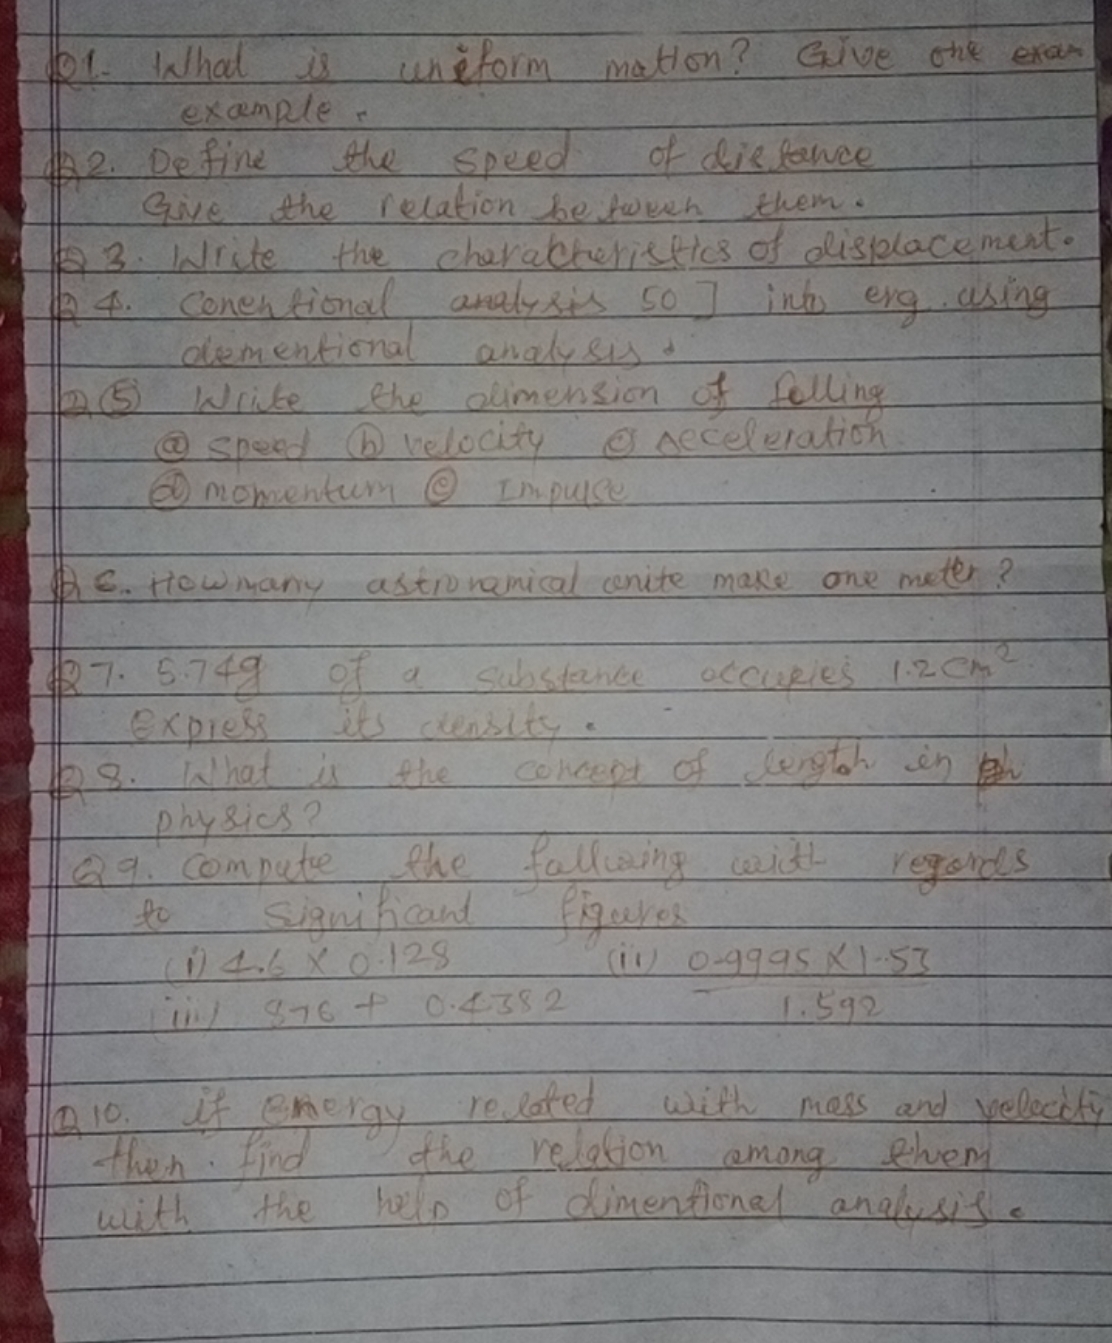 Q1. What is uniform motion? Give one exam
example.
Q2. Define the speed of distance
Give the relation between them.
Q3. Write the charakteristics of displacement.
Q4. Conentional analysis 50 J into erg using
dementional analysis.
Q5 Write the dimension of folling
(a) speed (b) velocity (c) Acceleration
(d) momentum (e) Impulse
Q6. How many astronamical unite make one meter?
Q7. 5.74g of a substance occupies 1.2 cm²
Express its density.
Q8. What is the concept of length in ph
physics?
Q9. Compute the follwing with regards
to significant figures
(i) 4.6 X 0.128 (ii) 0.9995 X 1.53
(iii) 876 + 0.4382 1.592
Q10. if energy related with mass and velocity
then find the relation among them
with the help of dimentional analysis.